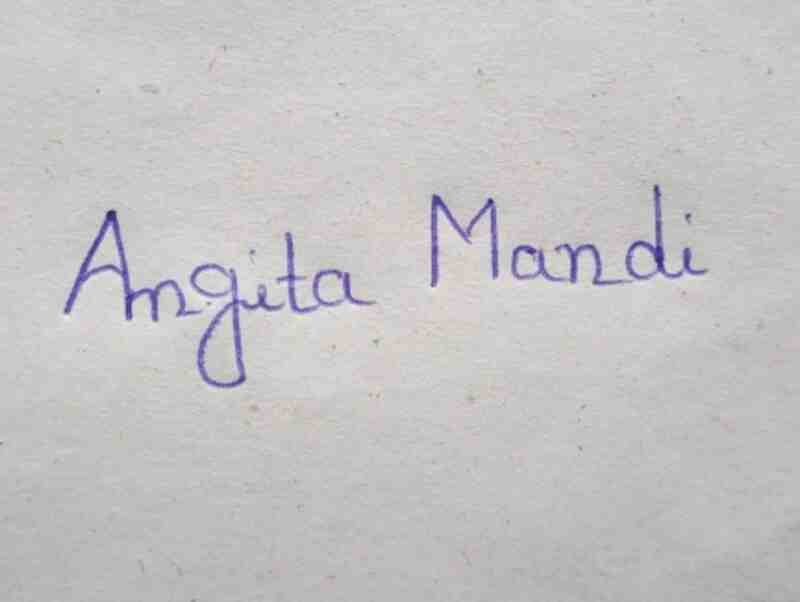 Angita Mandi